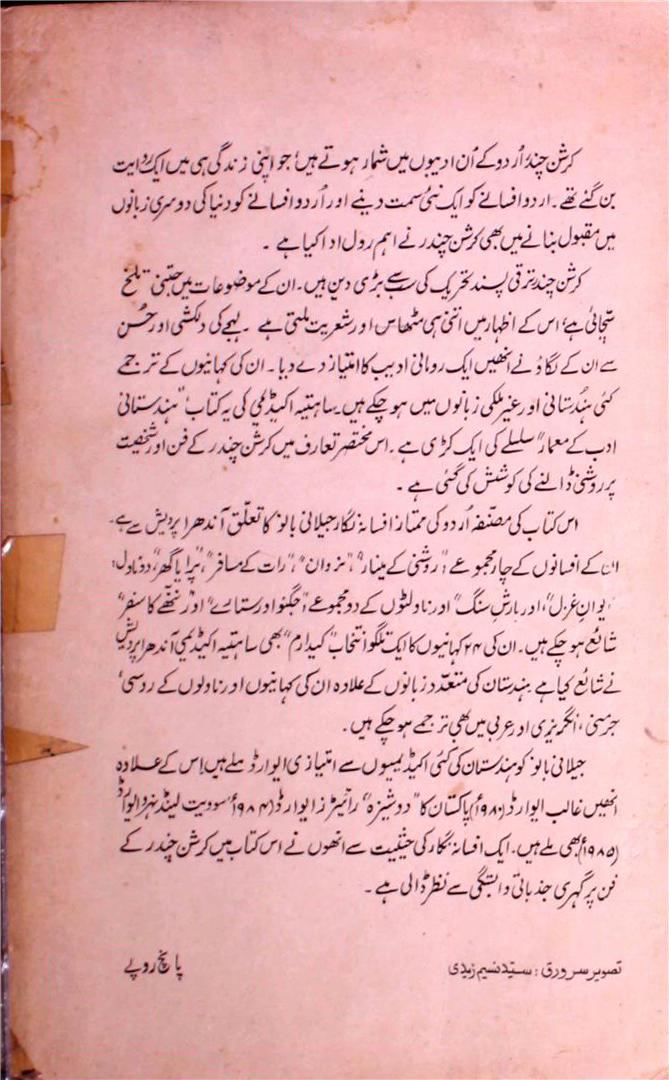 کرشن چندر اُردو کے اُن ادیبوں میں شمار ہوتے ہیں؛ جو اپنی زندگی ہی میں ایک روایت
بن گئے تھے۔ اردو افسانے کو ایک نئی سمت دینے اور اُردو افسانے کو دنیا کی دوسری زبانوں
میں مقبول بنانے میں بھی کرشن چندر نے اہم رول ادا کیا ہے ۔
کرشن چندر ترقی پسند تحریک کی سب سے بڑی دین ہیں۔ ان کے موضوعات میں جتنی تلخ
سچائی ہے؛ اس کے اظہار میں اتنی ہی مٹھاس اور شعریت ملتی ہے ۔ لہجے کی دلکشی اور حُسن
سے ان کے لگاؤ نے انھیں ایک رومانی ادیب کا امتیاز دے دیا۔ ان کی کہانیوں کے ترجمے
کئی ہندُستانی اور غیر ملکی زبانوں میں ہو چکے ہیں۔ ساہتیہ اکیڈیمی کی یہ کتاب "ہندستانی
ادب کے معمار" سلسلے کی ایک کڑی ہے۔ اس مختصر تعارف میں کرشن چندر کے فن اور شخصیت
پر روشنی ڈالنے کی کوشش کی گئی ہے ۔
اس کتاب کی مصنّفہ اُردو کی ممتاز افسانہ نگار جیلانی بانو کا تعلّق آندھرا پردیش سے ہے۔
ان کے افسانوں کے چار مجموعے "روشنی کے مینار"، "نروان"، "رات کے مسافر"، "پرایا گھر"، دو ناول:
"ایوانِ غزل"، اور "بارشِ سنگ" اور ناولٹوں کے دو مجموعے "جگنو اور ستارے" اور "نغمے کا سفر"
شائع ہو چکے ہیں۔ ان کی ۲۴ کہانیوں کا ایک تلگو انتخاب "کیدارم" بھی ساہتیہ اکیڈیمی آندھرا پردیش
نے شائع کیا ہے ہندستان کی متعدّد زبانوں کے علاوہ ان کی کہانیوں اور ناولوں کے روسی'
جرمنی، انگریزی اور عربی میں بھی ترجمے ہو چکے ہیں۔
جیلانی بانو کو ہندستان کی کئی اکیڈیمیوں سے امتیازی ایوارڈ ملے ہیں اِس کے علاوہ
انھیں غالب ایوارڈ (۱۹۸۰ء) پاکستان کا "دوشیزہ" رائیٹرز ایوارڈ (۱۹۸۴ء) سوویت لینڈ نہرو ایوارڈ
(۱۹۸۵ء) بھی ملے ہیں۔ ایک افسانہ نگار کی حیثیت سے انھوں نے اس کتاب میں کرشن چندر کے
فن پر گہری جذباتی وابستگی سے نظر ڈالی ہے ۔
تصویر سرورق : سیّد نسیم زیدی
پانچ روپے